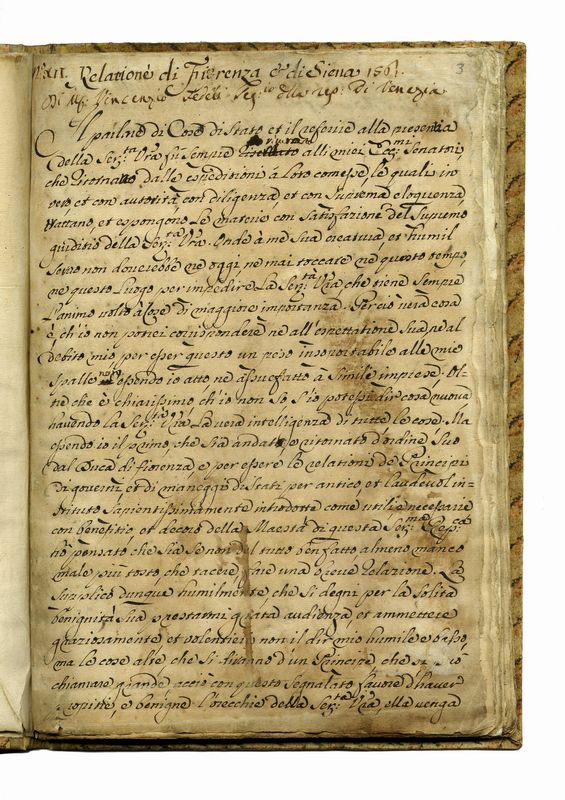 N.º XII. Relatione di Fiorenza et di Siena 1561. 3
Di M.r Vincenzio Fedeli Seg.rio della Rep. di Venezia
Il parlare di Cose di Stato et il riferire alla presentia
della Ser.tà Vra fù sempre riservato alli miei Ecc.mi Senatori,
che ritornano dalle espeditioni à loro comesse, le quali in
vero, et con autorità, con diligenza, et con suprema eloquenza
trattano, et espongono le materie con satisfazione del supremo
giuditio della Ser.tà Vra. Onde à me sua creatura, et humil
servo non doverebbe ne oggi, ne mai toccare ne questo tempo
ne questo luogo per impedire la Ser.tà Vra che tiene sempre
l'animo volto à Cose di maggiore importanza. Perciò vera cosa
è, ch'io non potrei corrispondere ne all'espettatione sua, ne al
debito mio per esser questo un peso insopportabile alle mie
spalle non essendo io atto ne assuefatto à simile imprese. Ol-
tre che è chiarissimo ch'io non so s'io potessi dir cosa nuova
havendo la Ser.tà Vra la vera intelligenza di tutte le cose. Ma
essendo io il primo, che sia andato, e ritornato d'ordine suo
dal Duca di fiorenza, e per essere le relationi de Principi
di governi, et di maneggi di Stati per antico, et laudevol in-
stituto sapientissimamente introdotte come utili e necessarie
con benefitio, et decoro della Maestà di questa Ser.ma Rep.ca
hò pensato che sia se non del tutto ben fatto almeno manco
male più tosto che tacere, fare una breve relazione. La
supplico dunque humilmente che si degni per la solita
benignità sua prestarmi grata audienza et ammettere
graziosamente et volentieri non il dir mio humile e basso,
ma le cose alte che si diranno d'un Principe, che si può
chiamare grande acciò con questo segnalato favore d'haver
propitie, e benigne l'orecchie della Ser.tà Vra, ella venga